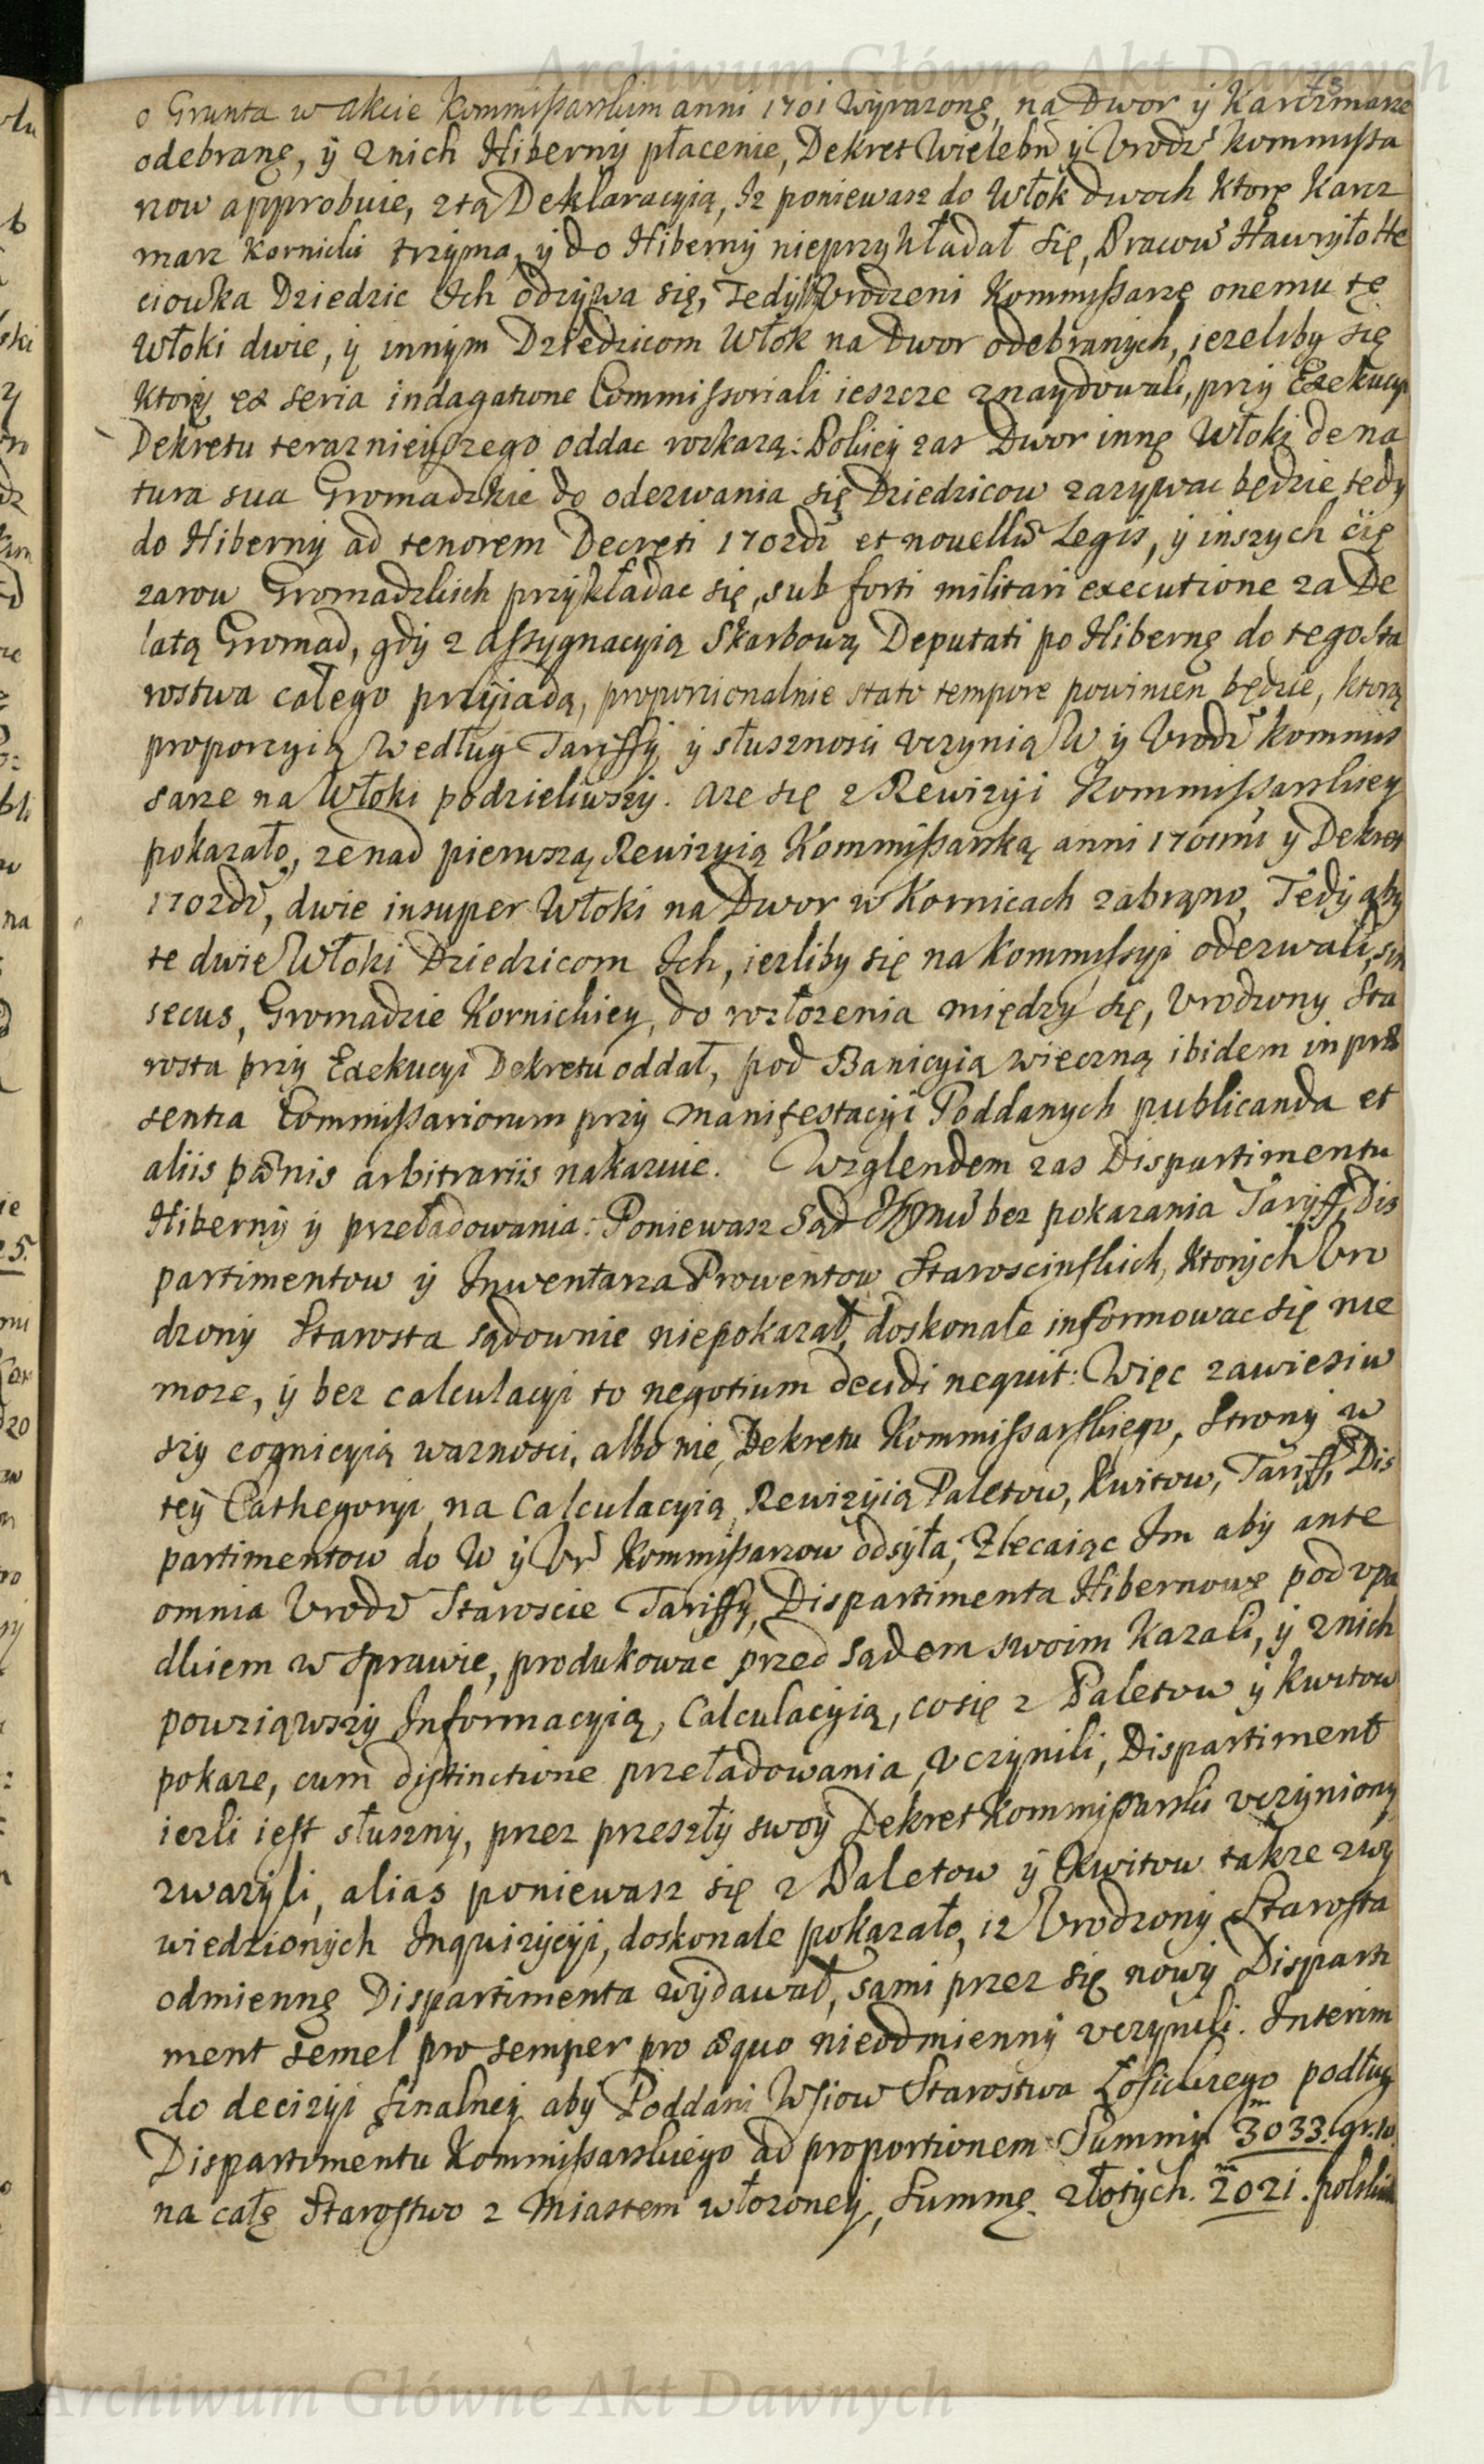 Archiwum Główne Akt Dawnych
73
o Grunta w akcie Kommissarskim anni 1701 wyrazone, na Dwor y Karczmarze
odebrane, y z nich Hiberny płacenie, Dekret Wielebn y Vrodz Kommissa
rzow approbuie, z tą Deklaracyią, Iz poniewasz do Włok dwoch ktore Karcz
marz Kornicki trzyma, y do Hiberny nieprzykładał się, Pracow Hawryło He
ciowka Dziedzic Ich odzywa się, Tedy Vrodzeni Kommissarze onemu te
Włoki dwie, y innym Dziedzicom Włok na Dwor odebranych, iezeliby się
ktorzy ex seria indagatione Commissoriali ieszcze znaydowali, przy Exekucyi
Dekretu teraznieyszego oddac rozkazą: Pokiey zas Dwor inne Włoki de na
tura sua Gromadzkie do odezwania się Dziedzicow zazywac będzie, tedy
do Hiberny ad tenorem Decreti 1702di et novellæ Legis, y inszych cię
zarow Gromadzkich przykładac się, sub forti militari executione za De
latą Gromad, gdy z Assygnacyią Skarbową Deputati po Hibernę do tego Sta
rostwa całego przyiadą, proporcionalnie stato tempore powinien będzie, ktorą
proporcyią według Tariffy y słusznosci vczynią W y Vrodz Kommis
sarze na Włoki podzieliwszy. A ze się z Rewizyi Kommissarskiey
pokazało, ze nad pierwszą Rewizyią Kommissarską anni 1701mi y Dekret
1702di, dwie insuper Włoki na Dwor w Kornicach zabrano, Tedy aby
te dwie Włoki Dziedzicom Ich, iezliby się na Kommissyi odezwali, sin
secus, Gromadzie Kornickiey, do rozłozenia między się, Vrodzony Sta
rosta przy Exekucyi Dekretu oddał, pod Banicyią wieczną ibidem in præ
sentia Commissariorum przy manifestacyi Poddanych publicanda et
aliis pœnis arbitrariis nakazuie. Wzglendem zas Dispartimentu
Hiberny y przeładowania: Poniewasz Sąd bez pokazania Taryff, Dis
partimentow y Inwentarza Prowentow Staroscinskich, ktorych Vro
dzony Starosta sądownie niepokazał, doskonale informowac się nie
moze, y bez calculacyi to negotium decidi nequit: Więc zawiesiw
szy cognicyią waznosci, albo nie, Dekretu Kommissarskiego, Strony w
tey Cathegoryi na Calculacyią, Rewizyią Paletow, Kwitow, Tariff, Dis
partimentow do W y Vr Kommissarzow odsyła, Zlecaiąc Im aby ante
omnia Vrodz Staroscie Tariffy, Dispartimenta Hibernowe pod vpa
dkiem w sprawie, produkowac przed Sądem swoim kazali, y z nich
powziąwszy Informacyią, Calculacyią, co się z Paletow y Kwitow
pokaze, cum distinctione przeładowania, vczynili, Dispartiment
iezli iest słuszny, przez przeszły swoy Dekret Kommissarski vczyniony
zwazyli, alias poniewasz się z Paletow y Kwitow takze z wy
wiedzionych Inquizycyi, doskonale pokazało, iz Vrodzony Starosta
odmienne Dispartimenta wydawał, sami przez się nowy Disparti
ment semel pro semper pro æquo nieodmienny vczynili. Interim
do decizyi finalney aby Poddani Wsiow Starostwa Łosickiego podług
Dispartimentu Kommissarskiego ad proportionem Summy 3033. gr. 10.
na całe Starostwo z Miastem włozoney, Summę złotych. 2021. polskich
Archiwum Główne Akt Dawnych